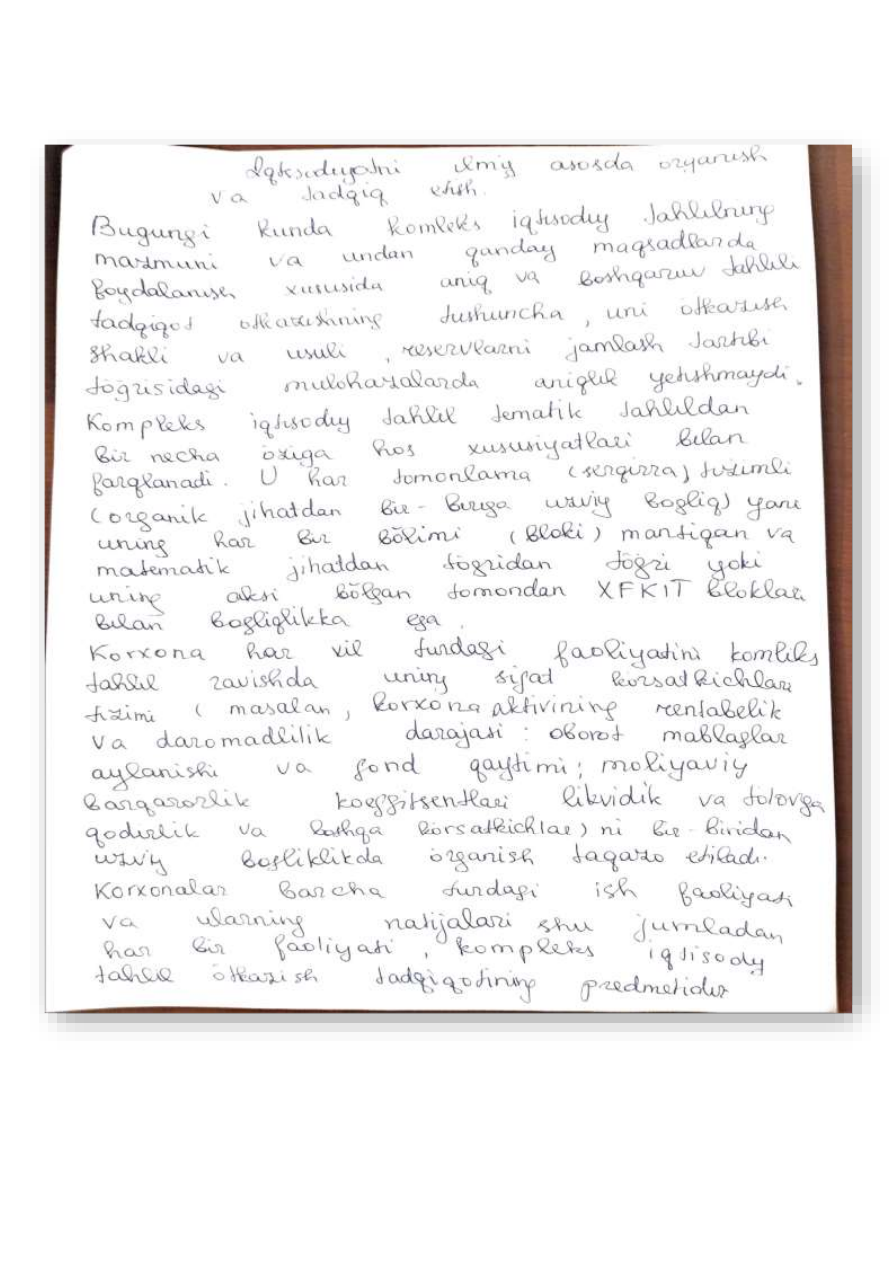 Iqtisodiyotni ilmiy asosda organish
va tadqiq etish.
Bugungi kunda komleks iqtisodiy tahlilning
mazmuni va undan qanday maqsadlarda
foydalanish xususida aniq va boshqaruv tahlili
tadqiqot ötkazishning tushuncha, uni ötkazish
shakli va usuli, reservlarni jamlash tartibi
töğrisidagi mulohazalarda aniqlik yetishmaydi.
Kompleks iqtisodiy tahlil tematik tahlildan
bir necha öziga hos xususiyatlari bilan
farqlanadi. U har tomonlama (serqirra) tizimli
(organik jihatdan bir-biriga uzviy bogliq) yani
uning har bir bölimi (bloki) mantiqan va
matematik jihatdan tögridan tögri yoki
uning aksi bölgan tomondan XFKIT bloklari
bilan bogliqlikka ega.
Korxona har xil turdagi faoliyatini komliks
tahlil ravishda uning sifat körsatkichlari
tizimi (masalan, korxona aktivining rentabelik
va daromadlilik darajasi: oborot mablaglar
aylanishi va fond qaytimi; moliyaviy
barqarorlik koeffitsentlari likvidik va tolovga
qodirlik va boshqa körsatkichlar) ni bir-biridan
uzviy bogliklikda örganish taqazo etiladi.
Korxonalar barcha turdagi ish faoliyati
va ularning natijalari shu jumladan
har bir faoliyati, kompleks iqtisody
tahlil ötkazish tadqiqotining predmetidir